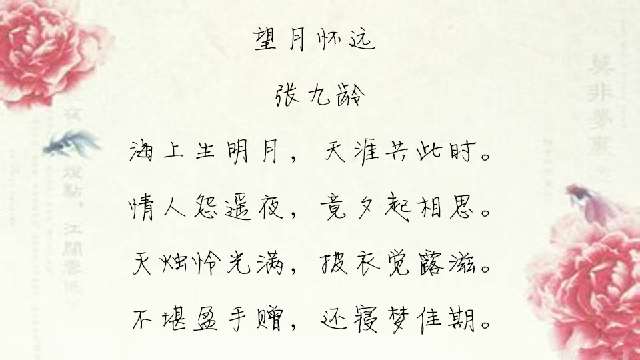 望月怀远
张九龄
海上生明月，天涯共此时。
情人怨遥夜，竟夕起相思。
灭烛怜光满，披衣觉露滋。
不堪盈手赠，还寝梦佳期。